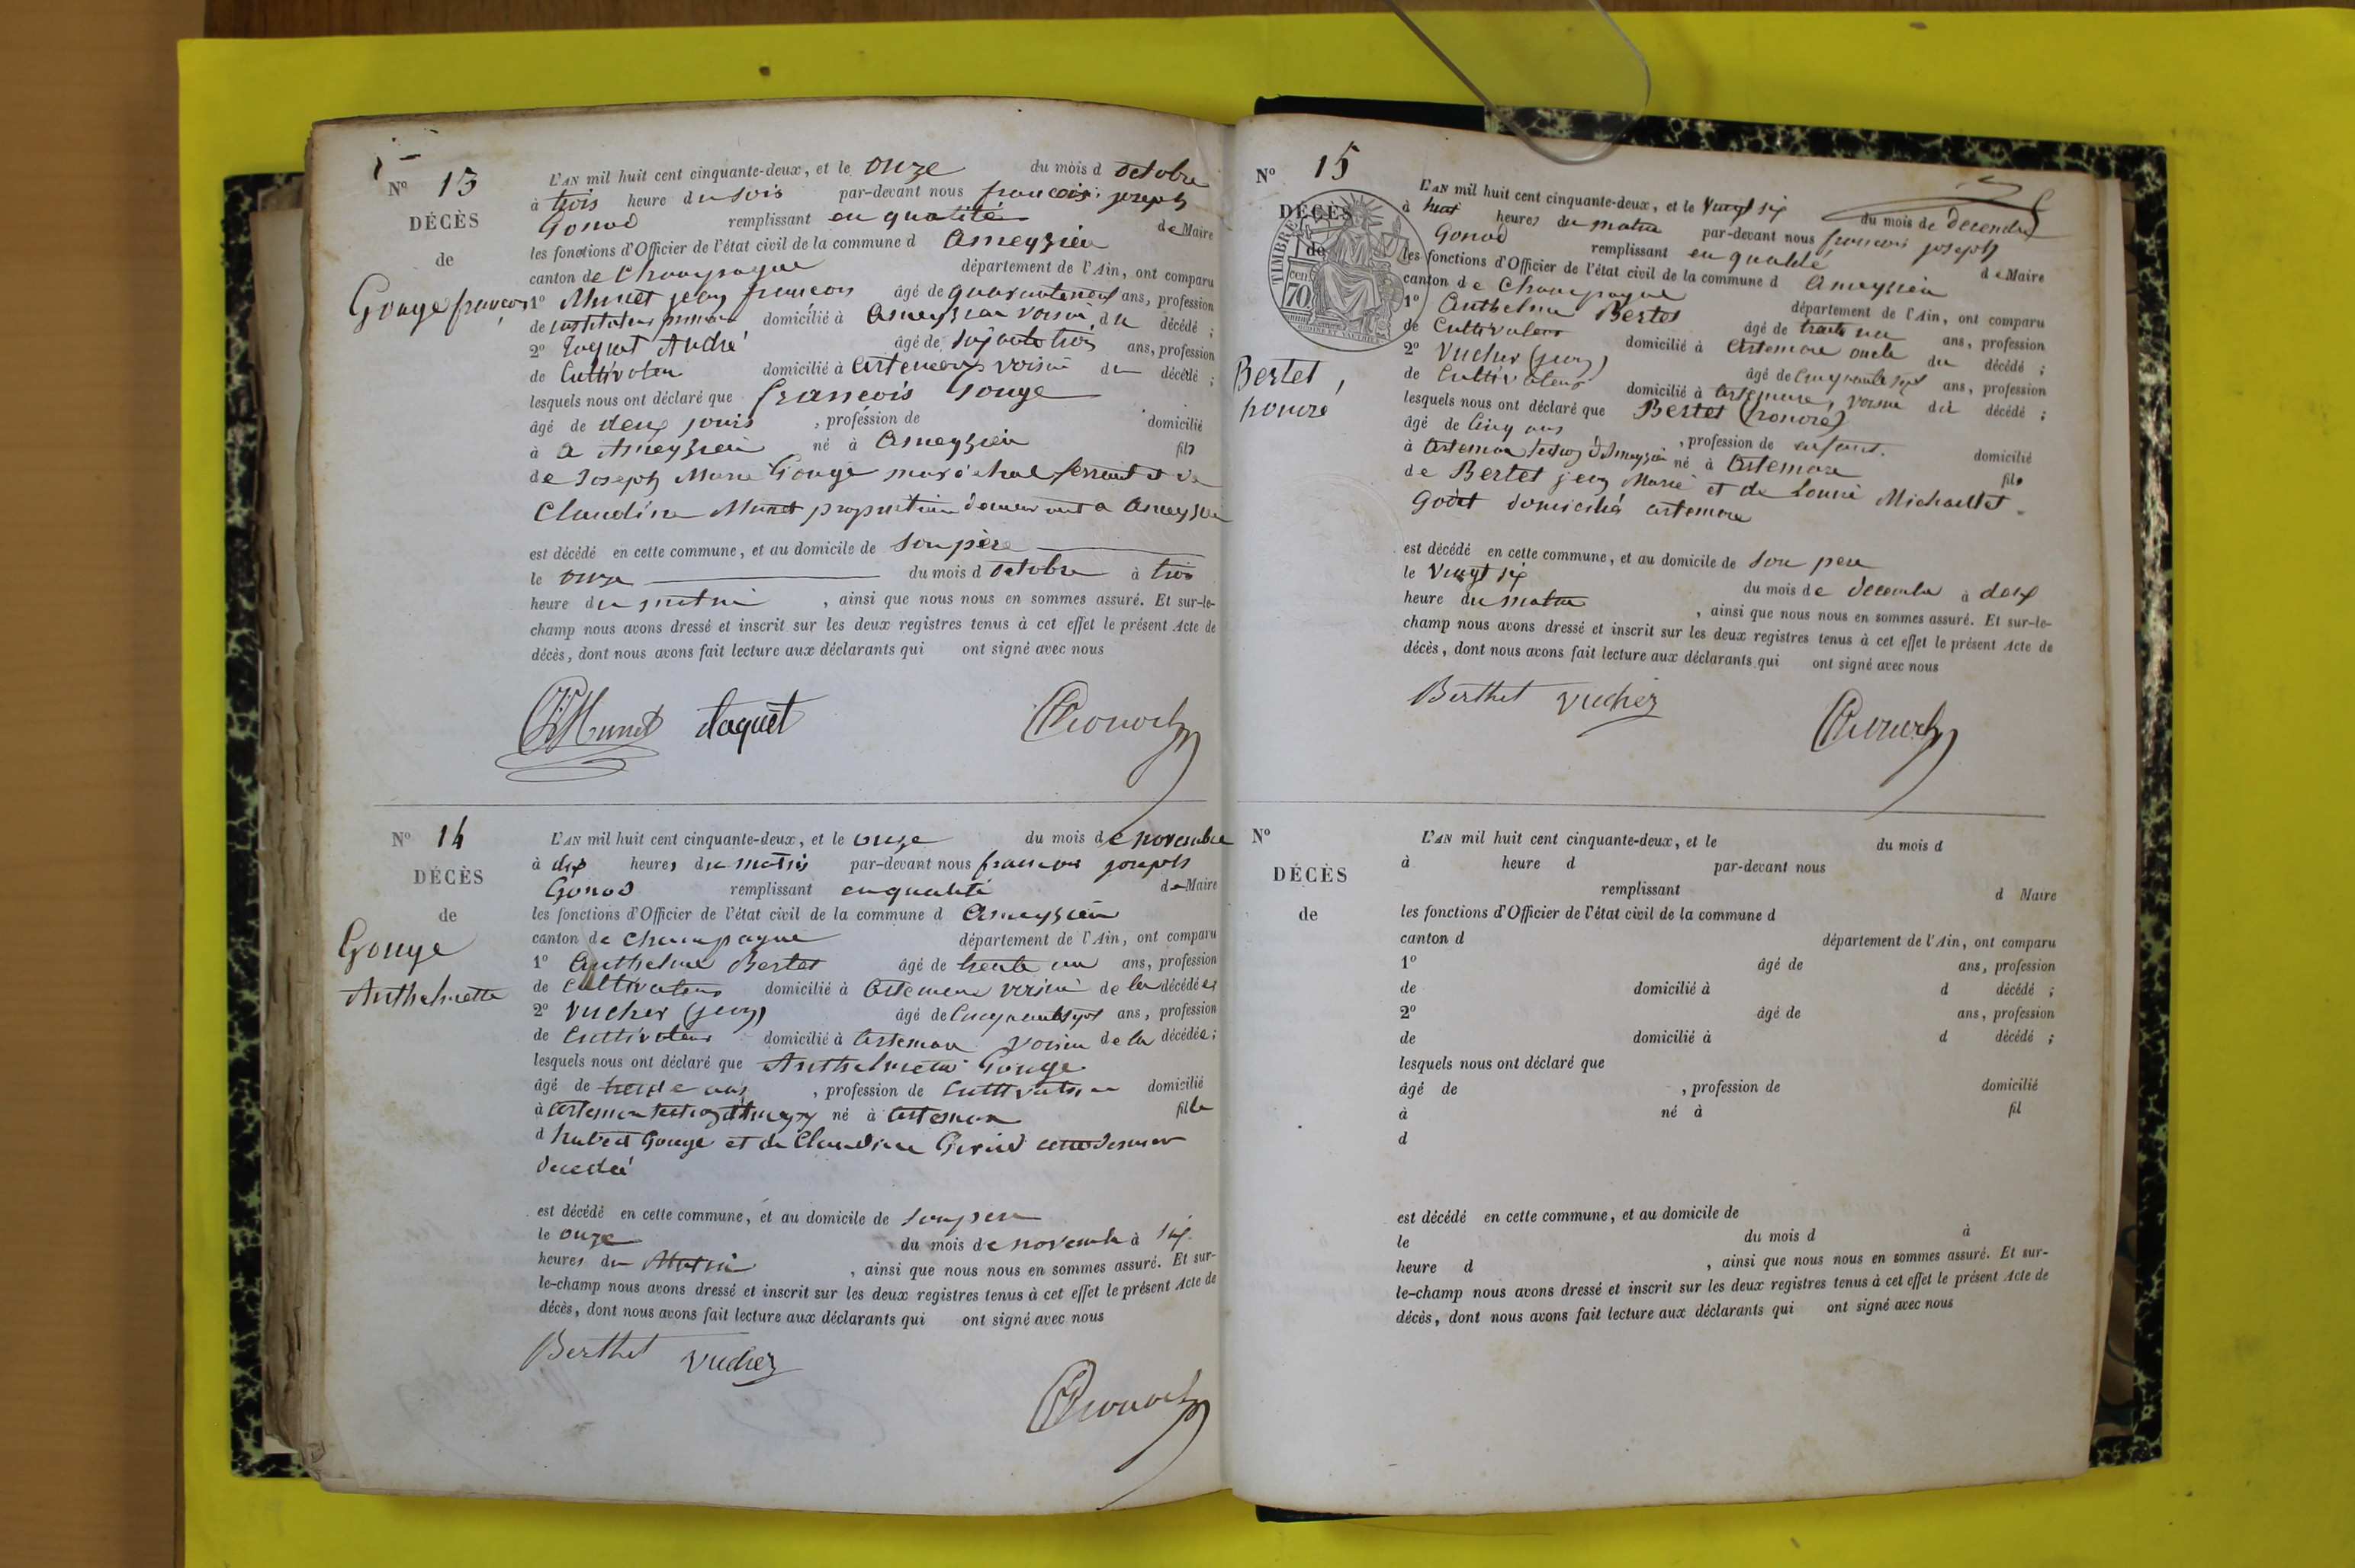 N° 13
DÉCÈS
de
Gouge françois
L'AN mil huit cent cinquante-deux, et le onze du mois d octobre
à trois heure du soir par-devant nous françois joseph
Gonod remplissant en qualité de Maire
les fonctions d'Officier de l'état civil de la commune d Ameyzieu
canton de Champagne département de l'Ain, ont comparu
1° Munet jean françois âgé de quaranteneuf ans, profession
de instituteur primaire domicilié à Ameyzieu voisin du décédé ;
2° Taquet André âgé de soixante trois ans, profession
de Cultivateur domicilié à Artemare voisin du décédé ;
lesquels nous ont déclaré que françois Gouge
âgé de deux jours , profession de domicilié
à a Ameyzieu né à Ameyzieu fils
de Joseph Marie Gouge maréchal ferrant et de
Claudine Munet propriétaire demeurant a Ameyzieu
est décédé en cette commune, et au domicile de son père
le onze du mois d octobre à trois
heure du matin , ainsi que nous nous en sommes assuré. Et sur-le-
champ nous avons dressé et inscrit sur les deux registres tenus à cet effet le présent Acte de
décès, dont nous avons fait lecture aux déclarants qui ont signé avec nous
Munet Taquet Gonod
N° 14
DÉCÈS
de
Gouge
Anthelmette
L'AN mil huit cent cinquante-deux, et le onze du mois de novembre
à dix heures du matin par-devant nous françois joseph
Gonod remplissant en qualité de Maire
les fonctions d'Officier de l'état civil de la commune d Ameyzieu
canton de Champagne département de l'Ain, ont comparu
1° Anthelme Bertet âgé de trente un ans, profession
de Cultivateur domicilié à Artemare voisin de la décédée
2° Vucher (jean) âgé de Cinquante sept ans, profession
de Cultivateur domicilié à Artemare voisin de la décédée ;
lesquels nous ont déclaré que Anthelmette Gouge
âgé de trente ans , profession de Cultivatrice domicilié
à Artemare né à Artemare fille
d hubert Gouge et de Claudine
décédé
est décédé en cette commune, et au domicile de son père
le onze du mois de novembre à six
heures du Matin , ainsi que nous nous en sommes assuré. Et sur-
le-champ nous avons dressé et inscrit sur les deux registres tenus à cet effet le présent Acte de
décès, dont nous avons fait lecture aux déclarants qui ont signé avec nous
Berthet Vucher
Gonod
N° 15
DÉCÈS
de
TIMBRE
cen
70
Bertet,
honoré
L'AN mil huit cent cinquante-deux, et le Vingt six du mois de decembre
à huit heures du matin par-devant nous françois joseph
Gonod remplissant en qualité de Maire
les fonctions d'Officier de l'état civil de la commune d Ameyzieu
canton de Champagne département de l'Ain, ont comparu
1° Anthelme Bertet âgé de trente un ans, profession
de Cultivateur domicilié à Artemare oncle du décédé ;
2° Vucher (jean) âgé de Cinquante sept ans, profession
de Cultivateur domicilié à Artemare, voisin du décédé ;
lesquels nous ont déclaré que Bertet (honoré)
âgé de Cinq ans , profession de enfant. domicilié
à Artemare section d'Ameyzieu né à Artemare fils
de Bertet jean Marie et de Louise Michallet
Godet domiciliés artemare
est décédé en cette commune, et au domicile de son pere
le Vingt six du mois de decembre à deux
heure du matin , ainsi que nous nous en sommes assuré. Et sur-le-
champ nous avons dressé et inscrit sur les deux registres tenus à cet effet le présent Acte de
décès, dont nous avons fait lecture aux déclarants qui ont signé avec nous
Berthet Vucher
Gonod
N°
DÉCÈS
de
L'AN mil huit cent cinquante-deux, et le du mois d
à heure d par-devant nous
remplissant d Maire
les fonctions d'Officier de l'état civil de la commune d
canton d département de l'Ain, ont comparu
1° âgé de ans, profession
de domicilié à d décédé ;
2° âgé de ans, profession
de domicilié à d décédé ;
lesquels nous ont déclaré que
âgé de , profession de domicilié
à né à fil
d
est décédé en cette commune, et au domicile de
le du mois d à
heure d , ainsi que nous nous en sommes assuré. Et sur-
le-champ nous avons dressé et inscrit sur les deux registres tenus à cet effet le présent Acte de
décès, dont nous avons fait lecture aux déclarants qui ont signé avec nous